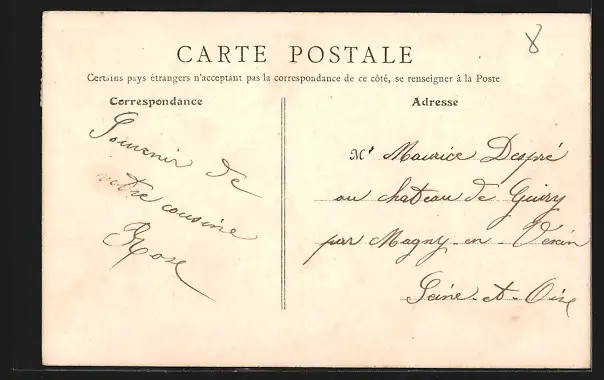 8
CARTE POSTALE
Certains pays étrangers n'acceptant pas la correspondance de ce côté, se renseigner à la Poste
Correspondance
Adresse
Souvenir de
votre cousine
Rose
Mr Maurice Despré
au chateau de Guiry
par Magny-en-Vexin
Seine-et-Oise